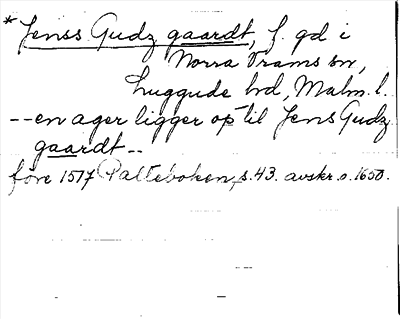 * Jenss Gudz gaardt, f. gd i
Norra Vrams sn,
Luggude hd, Malm. l.
-- en ager ligger op til Jens Gudz
gaardt --
före 1517 Palteboken, s. 43. avskr. o. 1650.